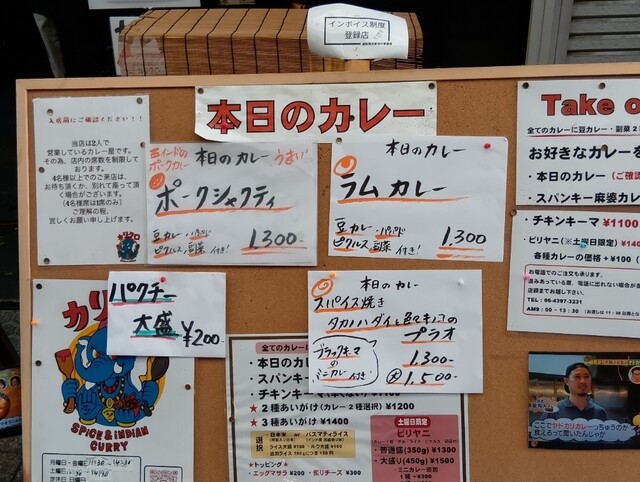 インボイス制度
登録店
本日のカレー
入店前にご確認ください!!
当店は2人で
営業しているカレー屋です。
その為、店内の席数を制限して
おります。
4名様以上でのご来店は、
お待ち頂くか、別れて座って頂
く場合がございます。
(4名様席は1席のみ)
ご理解の程、
宜しくお願い申し上げます。
西インドの
ポークカレー
本日のカレー
うまい!
ポークシャクティ
豆カレー・パパド
ピクルス・副菜 付き!
1300-
本日のカレー
ラムカレー
豆カレー・パパド
ピクルス・副菜 付き!
1,300-
Take o
全てのカレーに豆カレー・副菜
お好きなカレーを
・本日のカレー(ご確認
・スパンキー麻婆カレー
・チキンキーマ ¥1100
・ビリヤニ(※土曜日限定)¥140
各種カレーの価格 +¥100
お電話でのご注文も承ります。
TEL : 06-4397-3231
AM9:00 - 13:30
パクチー
大盛 ¥200-
本日のカレー
スパイス焼き
タカノハダイと色々キノコの
プラオ
ブラックキーマ
の
ミニカレー 付き!
1.300-
大 1.500-
カリ
SPICE & INDIAN
CURRY
月曜日-金曜日
定休日 日曜日
全てのカレーに
・本日のカレ
・スパンキー
・チキンキー
★2種あいがけ(カレー2種選択) ¥1200
★3種あいがけ ¥1400
選択
日本米 or バスマティライス
ライス大盛 ¥100 ・ルウ大盛 ¥160
★トッピング★
・エッグマサラ ¥200 ・炙りチーズ ¥300
土曜日限定
ビリヤニ
・普通盛(350g) ¥1300
・大盛り(450g) ¥1500
ミニカレー追加
1種 ¥300
ここでヤドカリカレーっちゅうのが
食えるって聞いたんじゃが